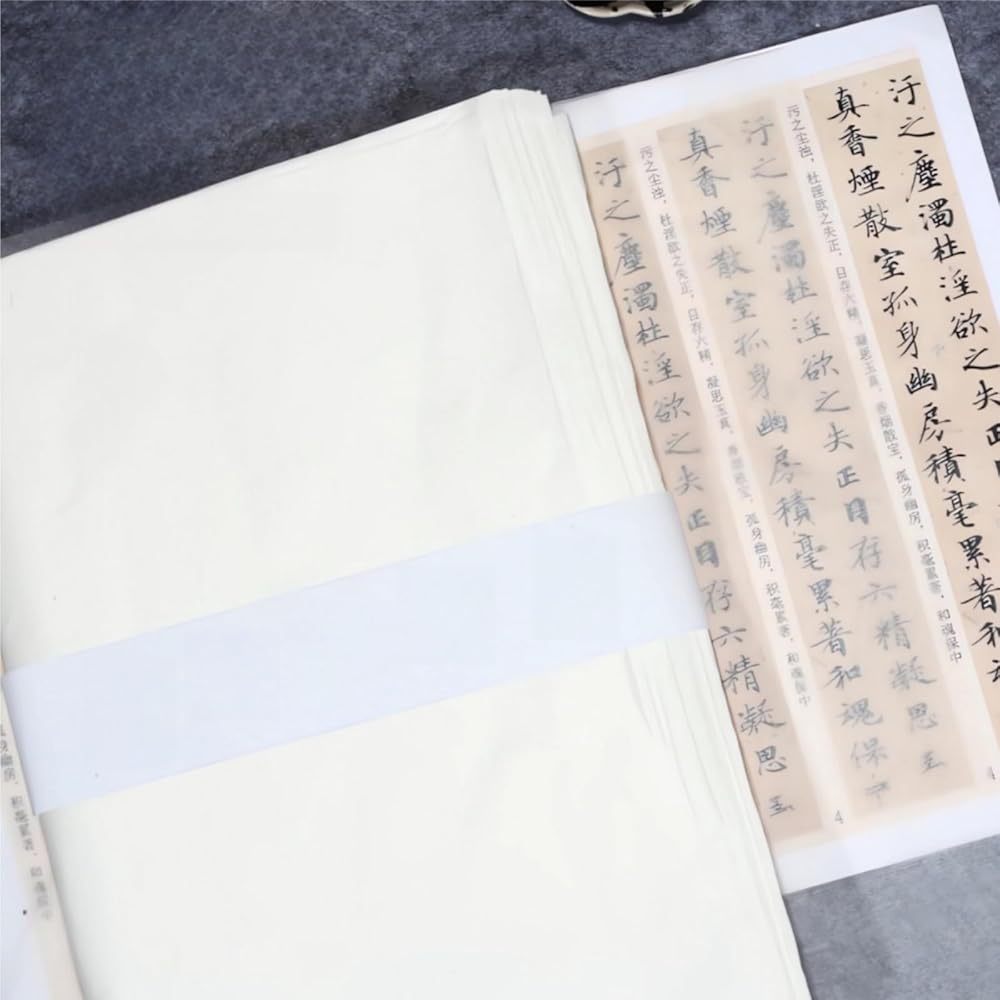 汙之塵濁杜淫欲之失正
真香煙散室孤身幽房積毫累著和
污之尘浊，杜淫欲之失正，日存六精，凝思玉真，香烟散室，孤身幽房，积毫累著，和魂保中
4
汙之塵濁杜淫欲之失正日存六精凝思玉
真香煙散室孤身幽房積毫累著和魂保中
污之尘浊，杜淫欲之失正，日存六精，凝思玉真，香烟散室，孤身幽房，积毫累著，和魂保中
4
汙之塵濁杜淫欲之失正日存六精凝思玉
身幽房，积毫累著，和魂保中